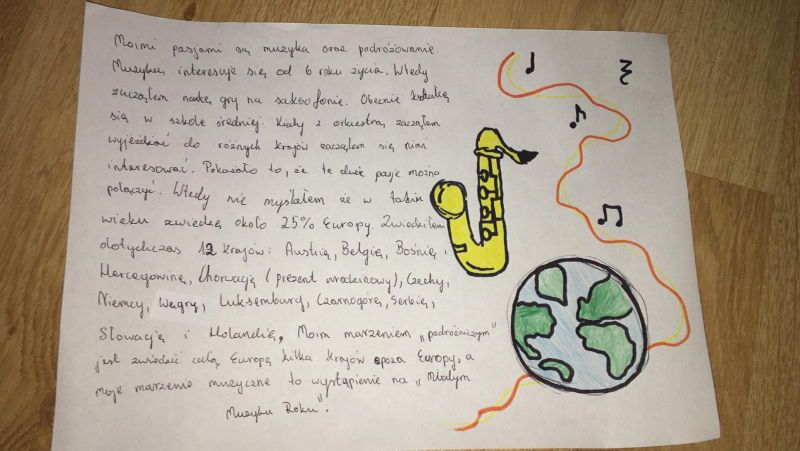 Moimi pasjami są muzyka oraz podróżowanie.
Muzyką interesuje się od 6 roku życia. Wtedy
zacząłem naukę gry na saksofonie. Obecnie kształcę
się w szkole średniej. Kiedy z orkiestrą zacząłem
wyjeżdżać do różnych krajów zacząłem się nimi
interesować. Pokazało to, że te dwie pasje można
połączyć. Wtedy nie myślałem że w takim
wieku zwiedzę około 25% Europy. Zwiedziłem
dotychczas 12 krajów: Austrią, Belgią, Bośnię i
Hercegowinę, Chorwacją (prezent urodzinowy), Czechy,
Niemcy, Węgry, Luksemburg, Czarnogórę, Serbię,
Słowację i Holandię. Moim marzeniem „podróżniczym"
jest zwiedzić całą Europę kilka krajów spoza Europy, a
moje marzenie muzyczne to wystąpienie na „Młodym
Muzyku Roku".